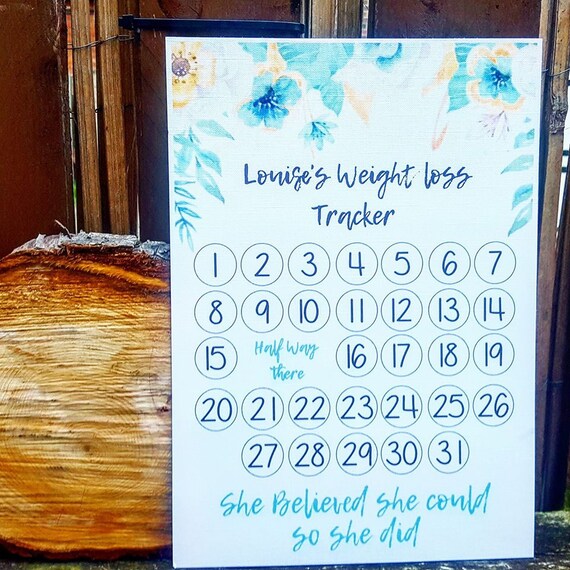 Louise's Weight loss
Tracker
1 2 3 4 5 6 7
8 9 10 11 12 13 14
15 Half Way there 16 17 18 19
20 21 22 23 24 25 26
27 28 29 30 31
She Believed she could
so she did